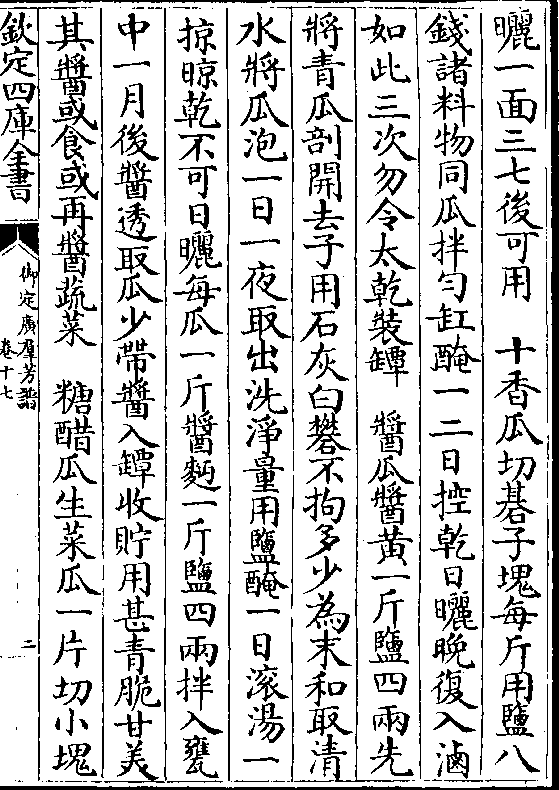 曬一面三七後可用　十香瓜切碁子塊每斤用鹽八
錢諸料物同瓜拌勻缸醃一二日控乾日曬晚復入滷
如此三次勿令太乾裝罈　醬瓜醬黃一斤鹽四兩先
將青瓜剖開去子用石灰白礬不拘多少為末和取清
水將瓜泡一日一夜取出洗淨量用鹽醃一日滚湯一
掠晾乾不可日曬每瓜一斤醬麪一斤鹽四兩拌入甕
中一月後醬透取瓜少帶醬入罈收貯用甚青脆甘美
其醬或食或再醬蔬菜　糖醋瓜生菜瓜一片切小塊
欽定四庫全書
御定廣羣芳譜
卷十七
二